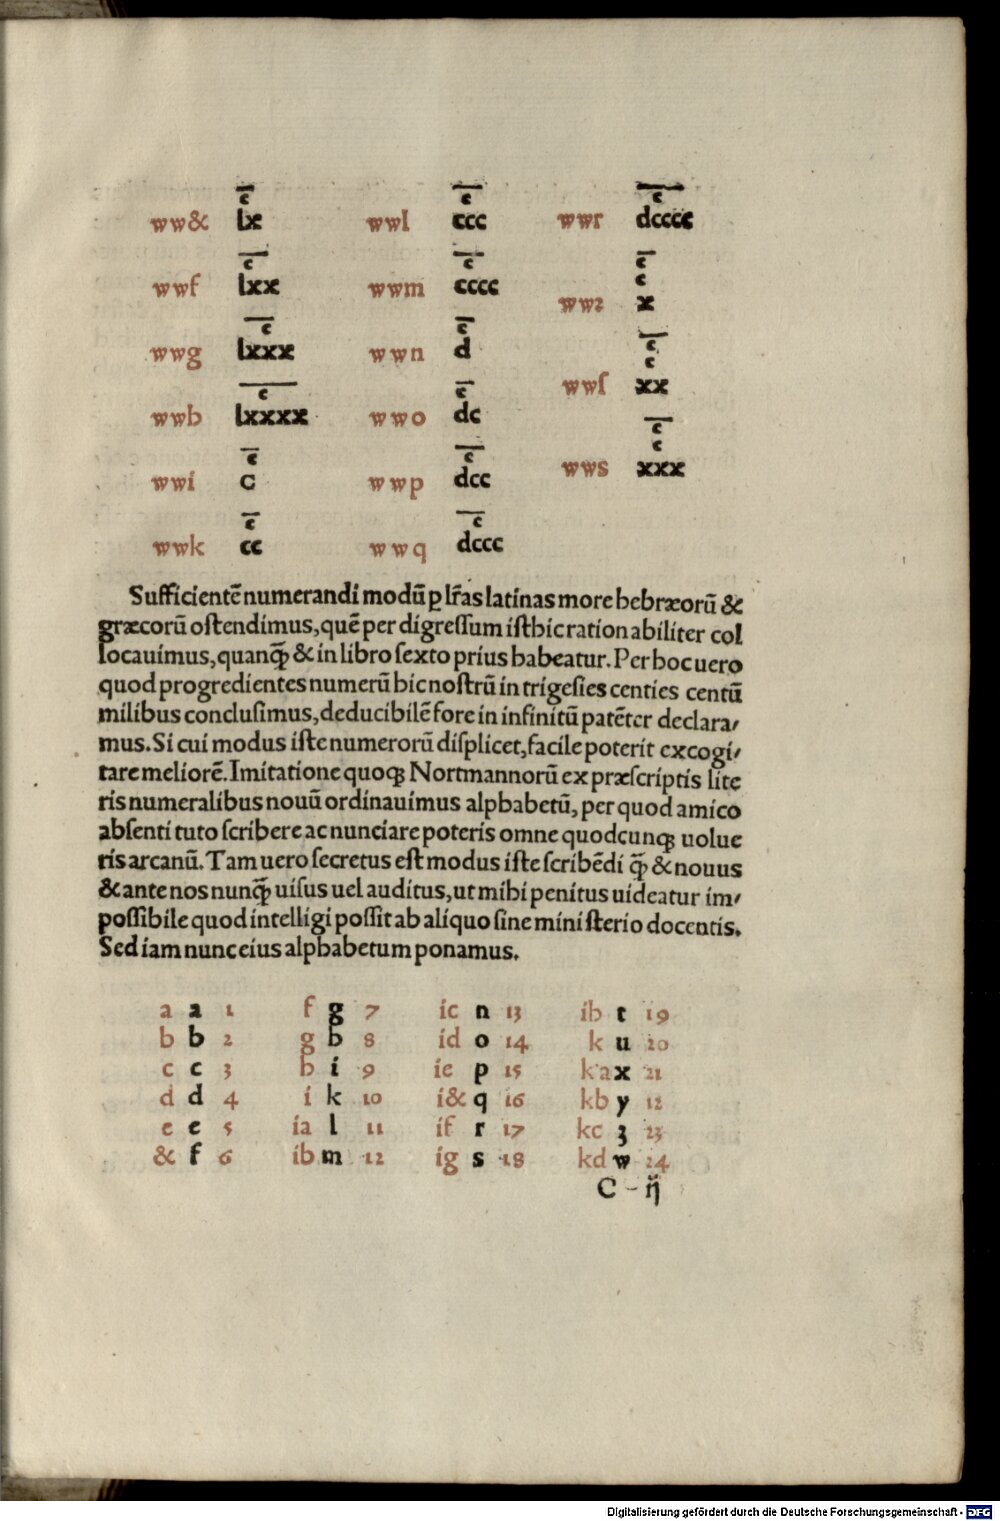 c̅ c̅ c̅
ww& lx wwl ccc wwr dcccc
c̅ c̅ c̅ c
wwf lxx wwm cccc wwꝛ x
c̅ c̅
wwg lxxx wwn d
c̅ c
wwſ xx
c̅ c̅
wwh lxxxx wwo dc
c̅ c
wws xxx
c̅ c̅
wwi c wwp dcc
c̅ c̅
wwk cc wwq dccc
Sufficientē numerandi modū ꝑ lr̃as latinas more hebræorū &
græcorū oſtendimus, quē per digreſſum iſthic rationabiliter col
locauimus, quanꝙ̃ & in libro ſexto prius habeatur. Per hoc uero
quod progredientes numerū hic noſtrū in trigeſies centies centū
milibus concluſimus, deducibilē fore in infinitū patēter declara/
mus. Si cui modus iſte numerorū diſplicet, facile poterit excogi/
tare meliorē. Imitatione quoqꝫ Nortmannorū ex præſcriptis lite
ris numeralibus nouū ordinauimus alphabetū, per quod amico
abſenti tuto ſcribere ac nunciare poteris omne quodcunqꝫ uolue
ris arcanū. Tam uero ſecretus eſt modus iſte ſcribēdi ꝙ̃ & nouus
& ante nos nunꝙ̃ uiſus uel auditus, ut mihi penitus uideatur im/
poſſibile quod intelligi poſſit ab aliquo ſine miniſterio docentis.
Sed iam nunc eius alphabetum ponamus.
a a 1 f g 7 ic n 13 ih t 19
b b 2 g h 8 id o 14 k u 20
c c 3 h i 9 ie p 15 ka x 21
d d 4 i k 10 i& q 16 kb y 12
e e 5 ia l 11 if r 17 kc ʒ 23
& f 6 ib m 12 ig s 18 kd w 24
C - ij
Digitalisierung gefördert durch die Deutsche Forschungsgemeinschaft - DFG